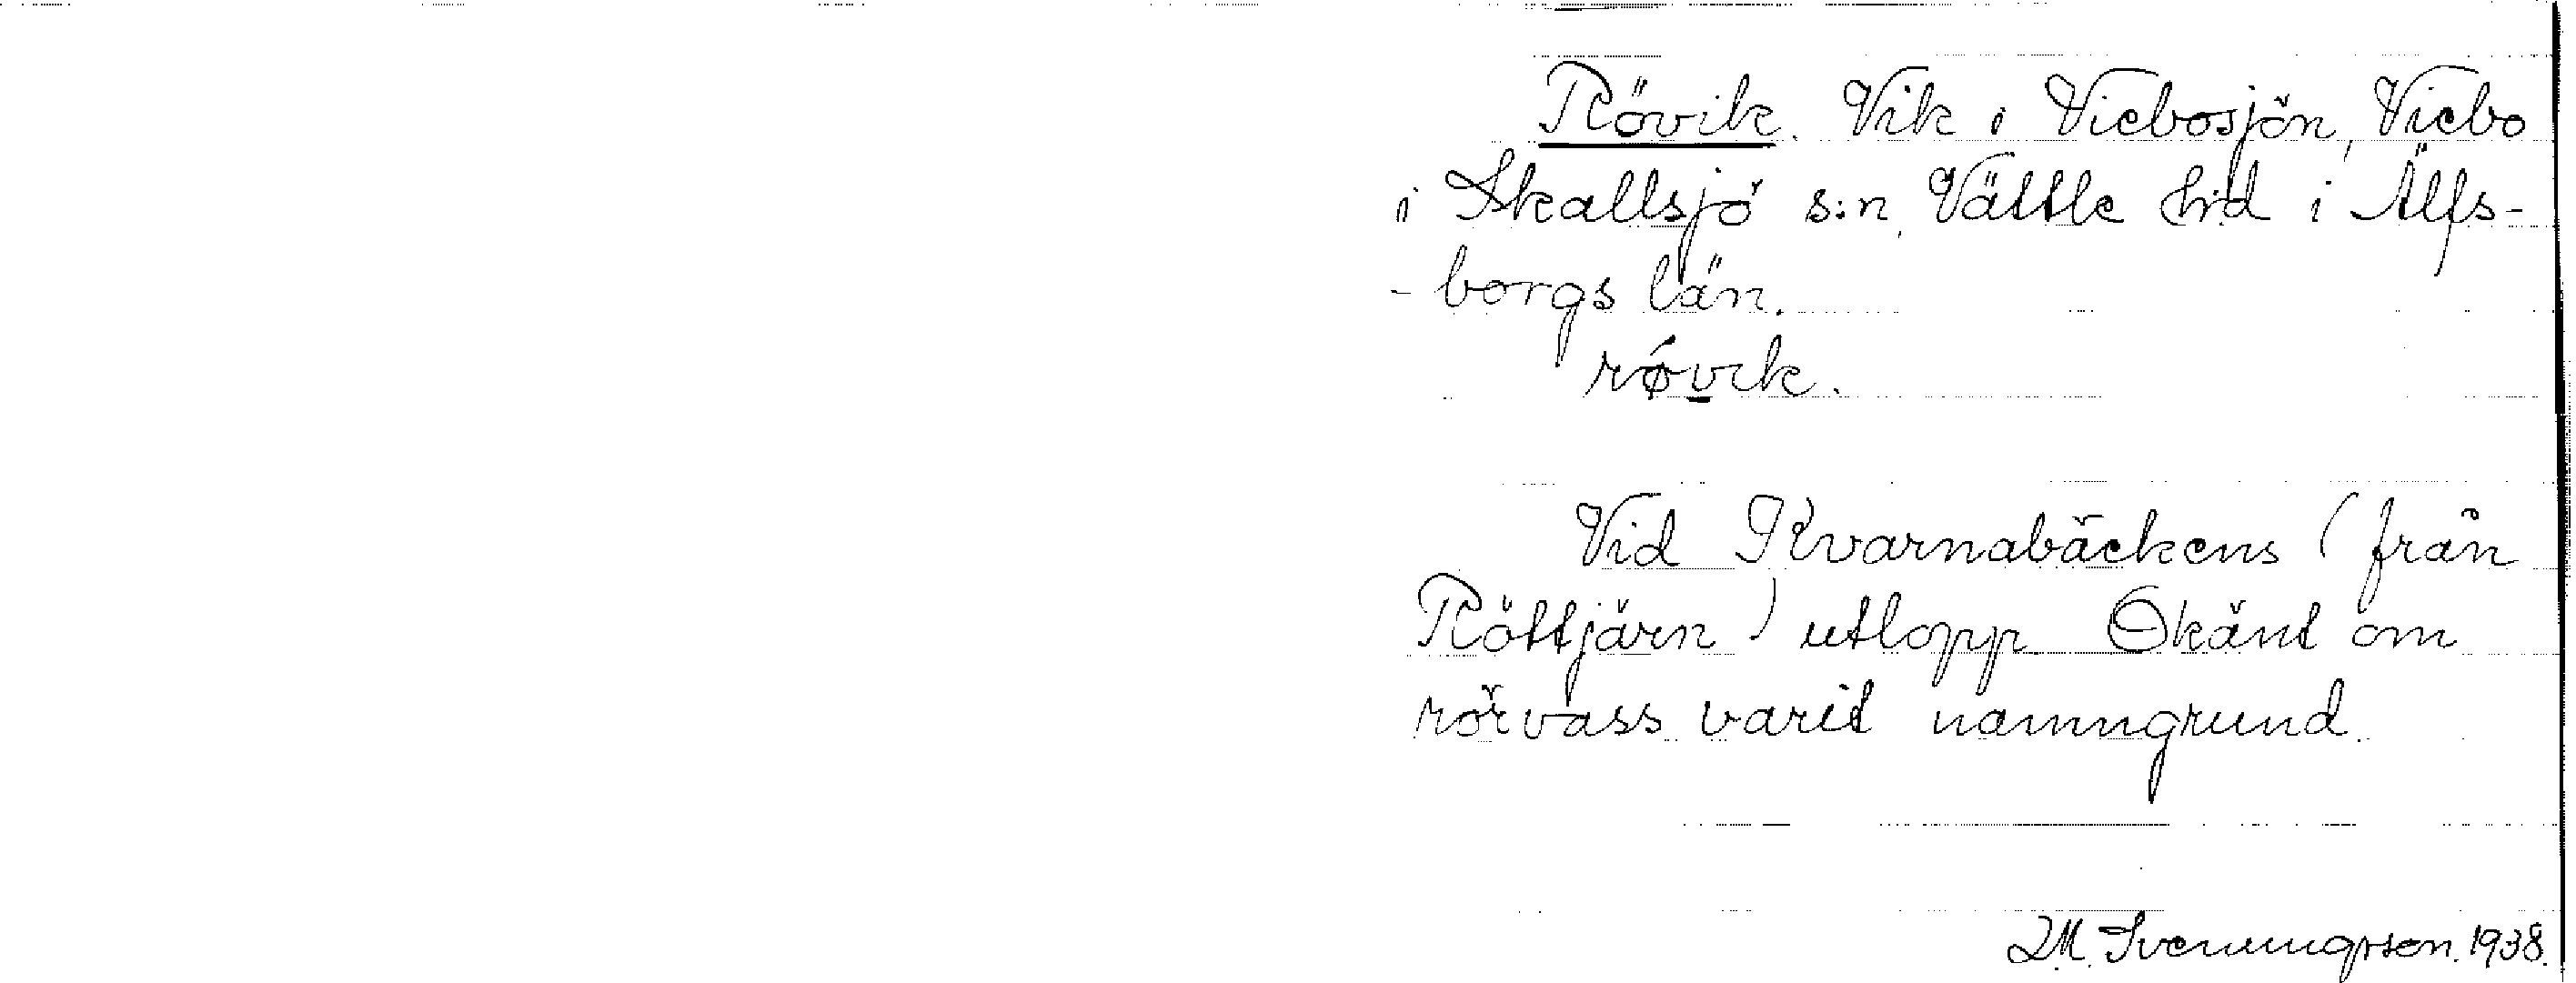 Rövik. Vik i Viebosjön, Viebo
i Skallsjö s:n, Vättle hrd i Älfs-
- borgs län.
røvik.
Vid Kvarnabäckens (från
Röttjärn) utlopp. Okänt om
rörvass varit namngrund.
I.M. Svenungsson. 1938.